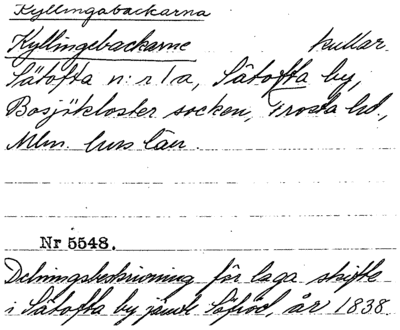 Kyllingabackarna
Kyllingebackarne kullar.
Sätofta n:r 1a, Sätofta by,
Bosjökloster socken, Frosta hd.,
Mlm.hus län.
Nr 5548.
Delningsbeskrivning för laga skifte
i Sätofta by jämte Säfröd, år 1838.